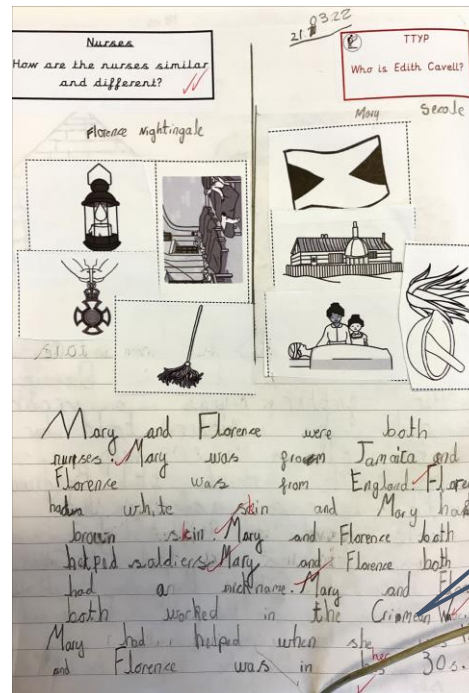 21.03.22
Nurses
How are the nurses similar
and different?
TTYP
Who is Edith Cavell?
Florence Nightingale
Mary Secole
Mary and Florence were both
nurses. Mary was from Jamaica and
Florence was from England.
white skin and Mary had
brown skin. Mary and Florence both
helped soldiers. Mary and Florence both
had a nickname. Mary and
both worked in the Crimean
Mary had helped when she
and Florence was in her 30s.